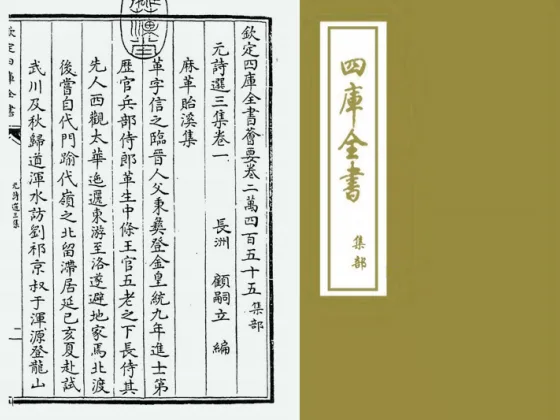 欽定四庫全書薈要卷二萬四百五十五 集部
元詩選三集卷一
長洲 顧嗣立 編
麻革貽溪集
革字信之臨晉人父秉彝登金皇統九年進士第
歷官兵部侍郎革生中條王官五老之下長侍其
先人西觀太華迤邐東游至洛遂避地家焉北渡
後嘗自代門踰代嶺之北留滯居延己亥夏赴試
武川及秋歸道渾水訪劉祁京叔于渾源登龍山
欽定四庫全書
元詩選三集
四庫全書
集部